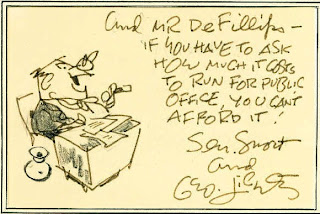 And MR DeFillips —
"IF YOU HAVE TO ASK
HOW MUCH IT COSTS
TO RUN FOR PUBLIC
OFFICE, YOU CAN'T
AFFORD IT!
Sen. Snort
and
Geo.